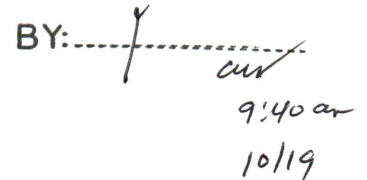 BY:
9:40 am
10/19